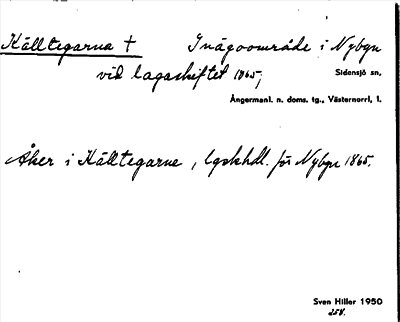 Källtegarna † Inägoområde i Nybyn
vid lagaskiftet 1865;
Sidensjö sn,
Ångermanl. n. doms. tg., Västernorrl. l.
Åker i Källtegarne, lgskhdl. för Nybyn 1865.
Sven Hiller 1950
254.